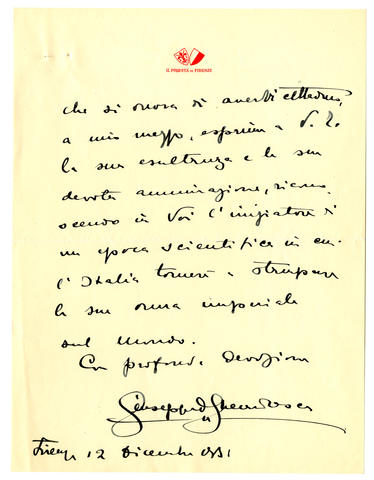 IL PODESTÀ DI FIRENZE
che si onora di avervi cittadino,
a mio mezzo, esprime a V. E.
la sua esultanza e la sua
devota ammirazione, ricono
scendo in Voi l'iniziatore di
una epoca scientifica in cui
l'Italia tornerà a stampare
la sua orma imperiale
sul mondo.
Con profonda devozione
Giuseppe della Gherardesca
Firenze 12 Dicembre 1931